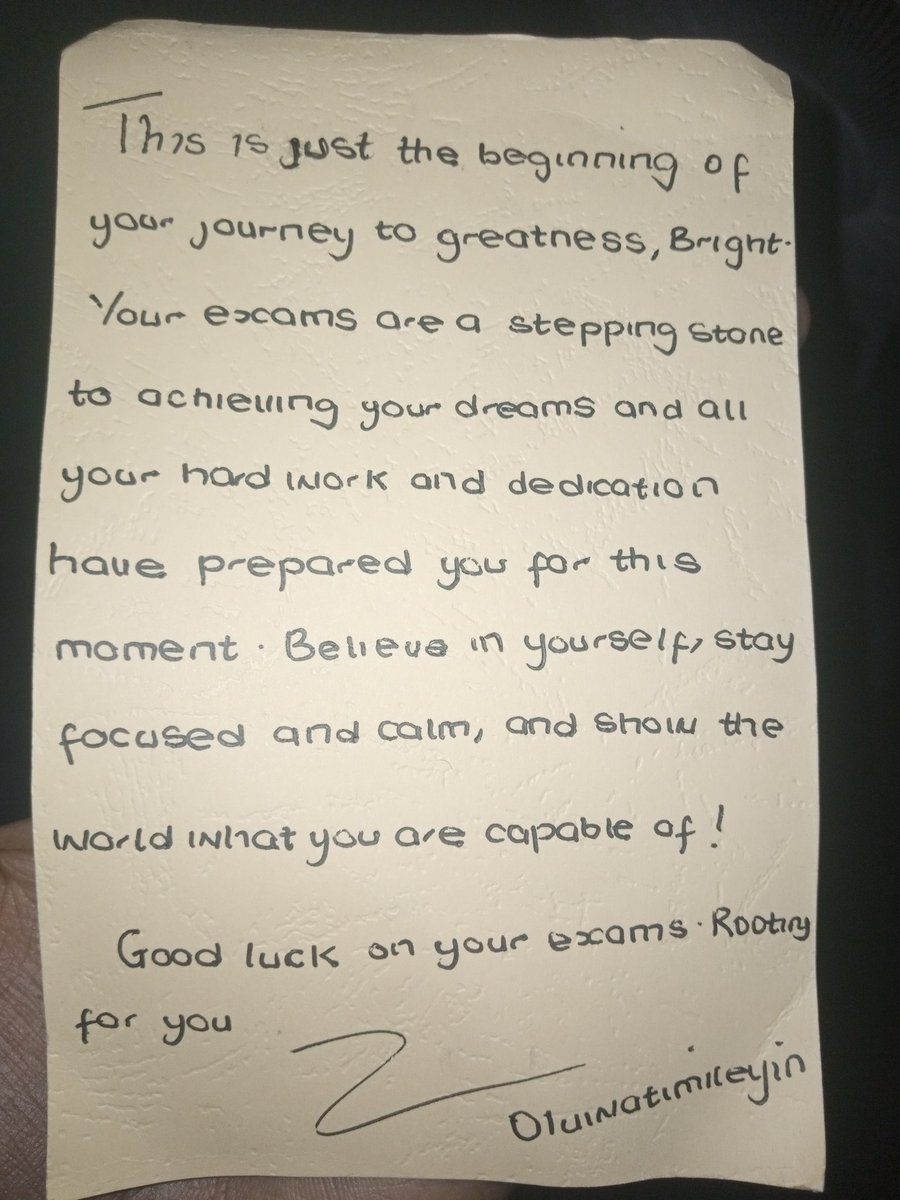 This is just the beginning of
your journey to greatness, Bright.
Your exams are a stepping stone
to achieving your dreams and all
your hard work and dedication
have prepared you for this
moment. Believe in yourself, stay
focused and calm, and show the
world what you are capable of!
Good luck on your exams. Rooting
for you
Oluwatimileyin